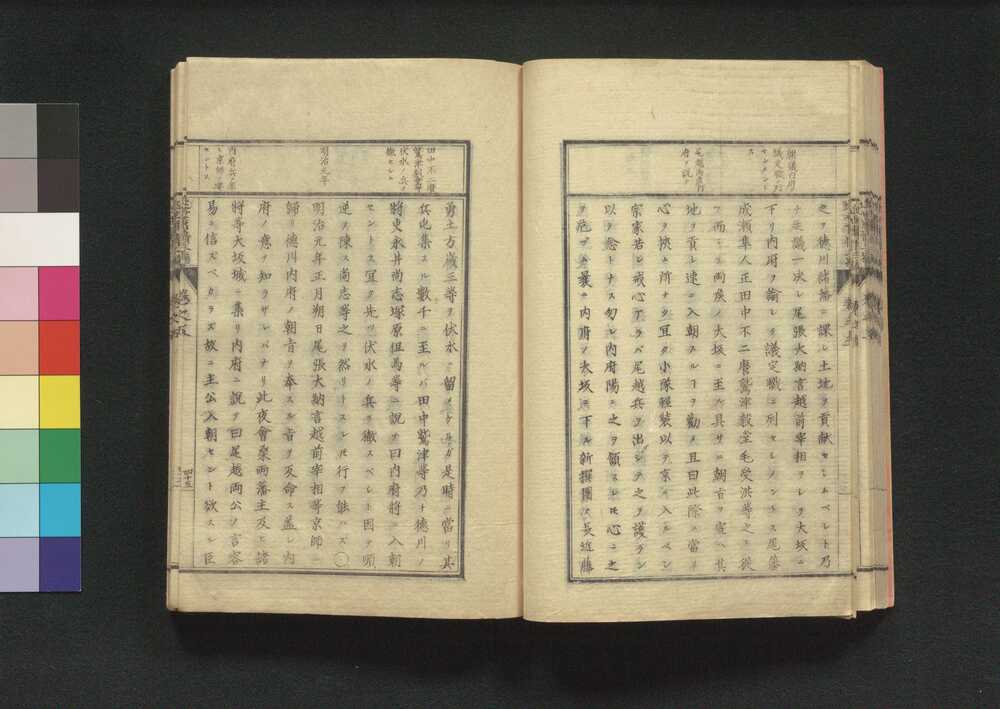 之ヲ德川諸藩ニ課シ土地ヲ貢献セシムベシト乃
チ廷議一決シ尾張大納言越前宰相ヲシテ大坂ニ
下リ内府ヲ諭シテ議定職ニ列セシメントス尾藩
成瀬隼人正田中不二麿鷲津毅堂毛受洪等之ニ從
フ而シテ兩侯ノ大坂ニ至ル具サニ朝旨ヲ宣ヘ其
地ヲ貢シ速ニ入朝スルヿヲ勸メ且曰此際ニ當リ
心ヲ挾ム所ナク宜ク小隊輕裝以テ京ニ入ルベシ
宗家若シ戒心アラバ尾越兵ヲ出シテ之ヲ護ラン
以テ念トナス勿レ内府陽ニ之ヲ領スレ𪜈心ニ之
ヲ危ブム曩ニ内府ヲ大坂ニ下ル新撰團ス長近藤
樹儀内府
議定職ニ列
セシメント
ス
尾越兩侯内
府ヲ説ク
勇土方歳三等ヲ伏水ニ留メタルガ是時ニ當リ其
兵屯集スル數千ニ至ルバ田中鷲津等乃チ德川ノ
將吏永井尚志塚原但馬等ニ説テ曰内府將ニ入朝
セントス宜ク先ツ伏水ノ兵ヲ徹スベシト因テ順
逆ヲ陳ス尚志等之ヲ然リトスレ𪜈行フ能ハズ〇
明治元年正月朔日尾張大納言越前宰相等京師ニ
歸リ德川内府ノ朝旨ヲ奉スル旨ヲ反命ス蓋シ内
府ノ意ヲ知ラザレバナリ此夜會桑兩藩主及ヒ諸
將等大坂城ニ集リ内府ニ説テ曰尾越兩公ノ言容
易ニ信ズベカラズ故ニ主公入朝セント欲スレ𪜈臣
田中不二麿
鷲津毅堂等
伏水ノ兵ヲ
徹セシム
明治元年
内府兵ヲ率
テ京師ニ奪
セントス
巻之五
四十五